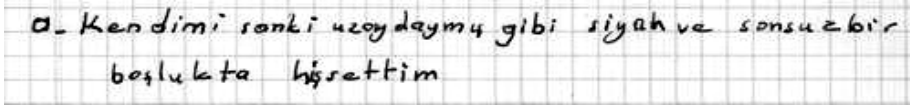 a- Kendimi sanki uzoydaymış gibi siyah ve sonsuz bir
boşlukta hissettim